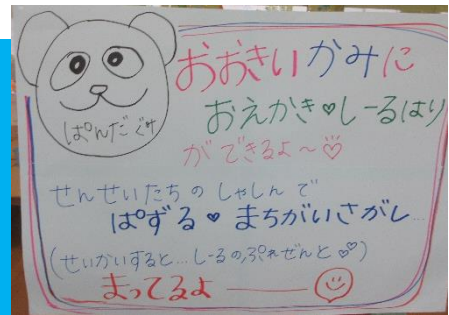 ぱんだぐみ
おおきいかみに
おえかき♥しーるはり
ができるよ～♡
せんせいたちのしゃしんで
ぱずる♥まちがいさがし…
(せいかいすると…しーるのぷれぜんと♡♡)
まってるよ――